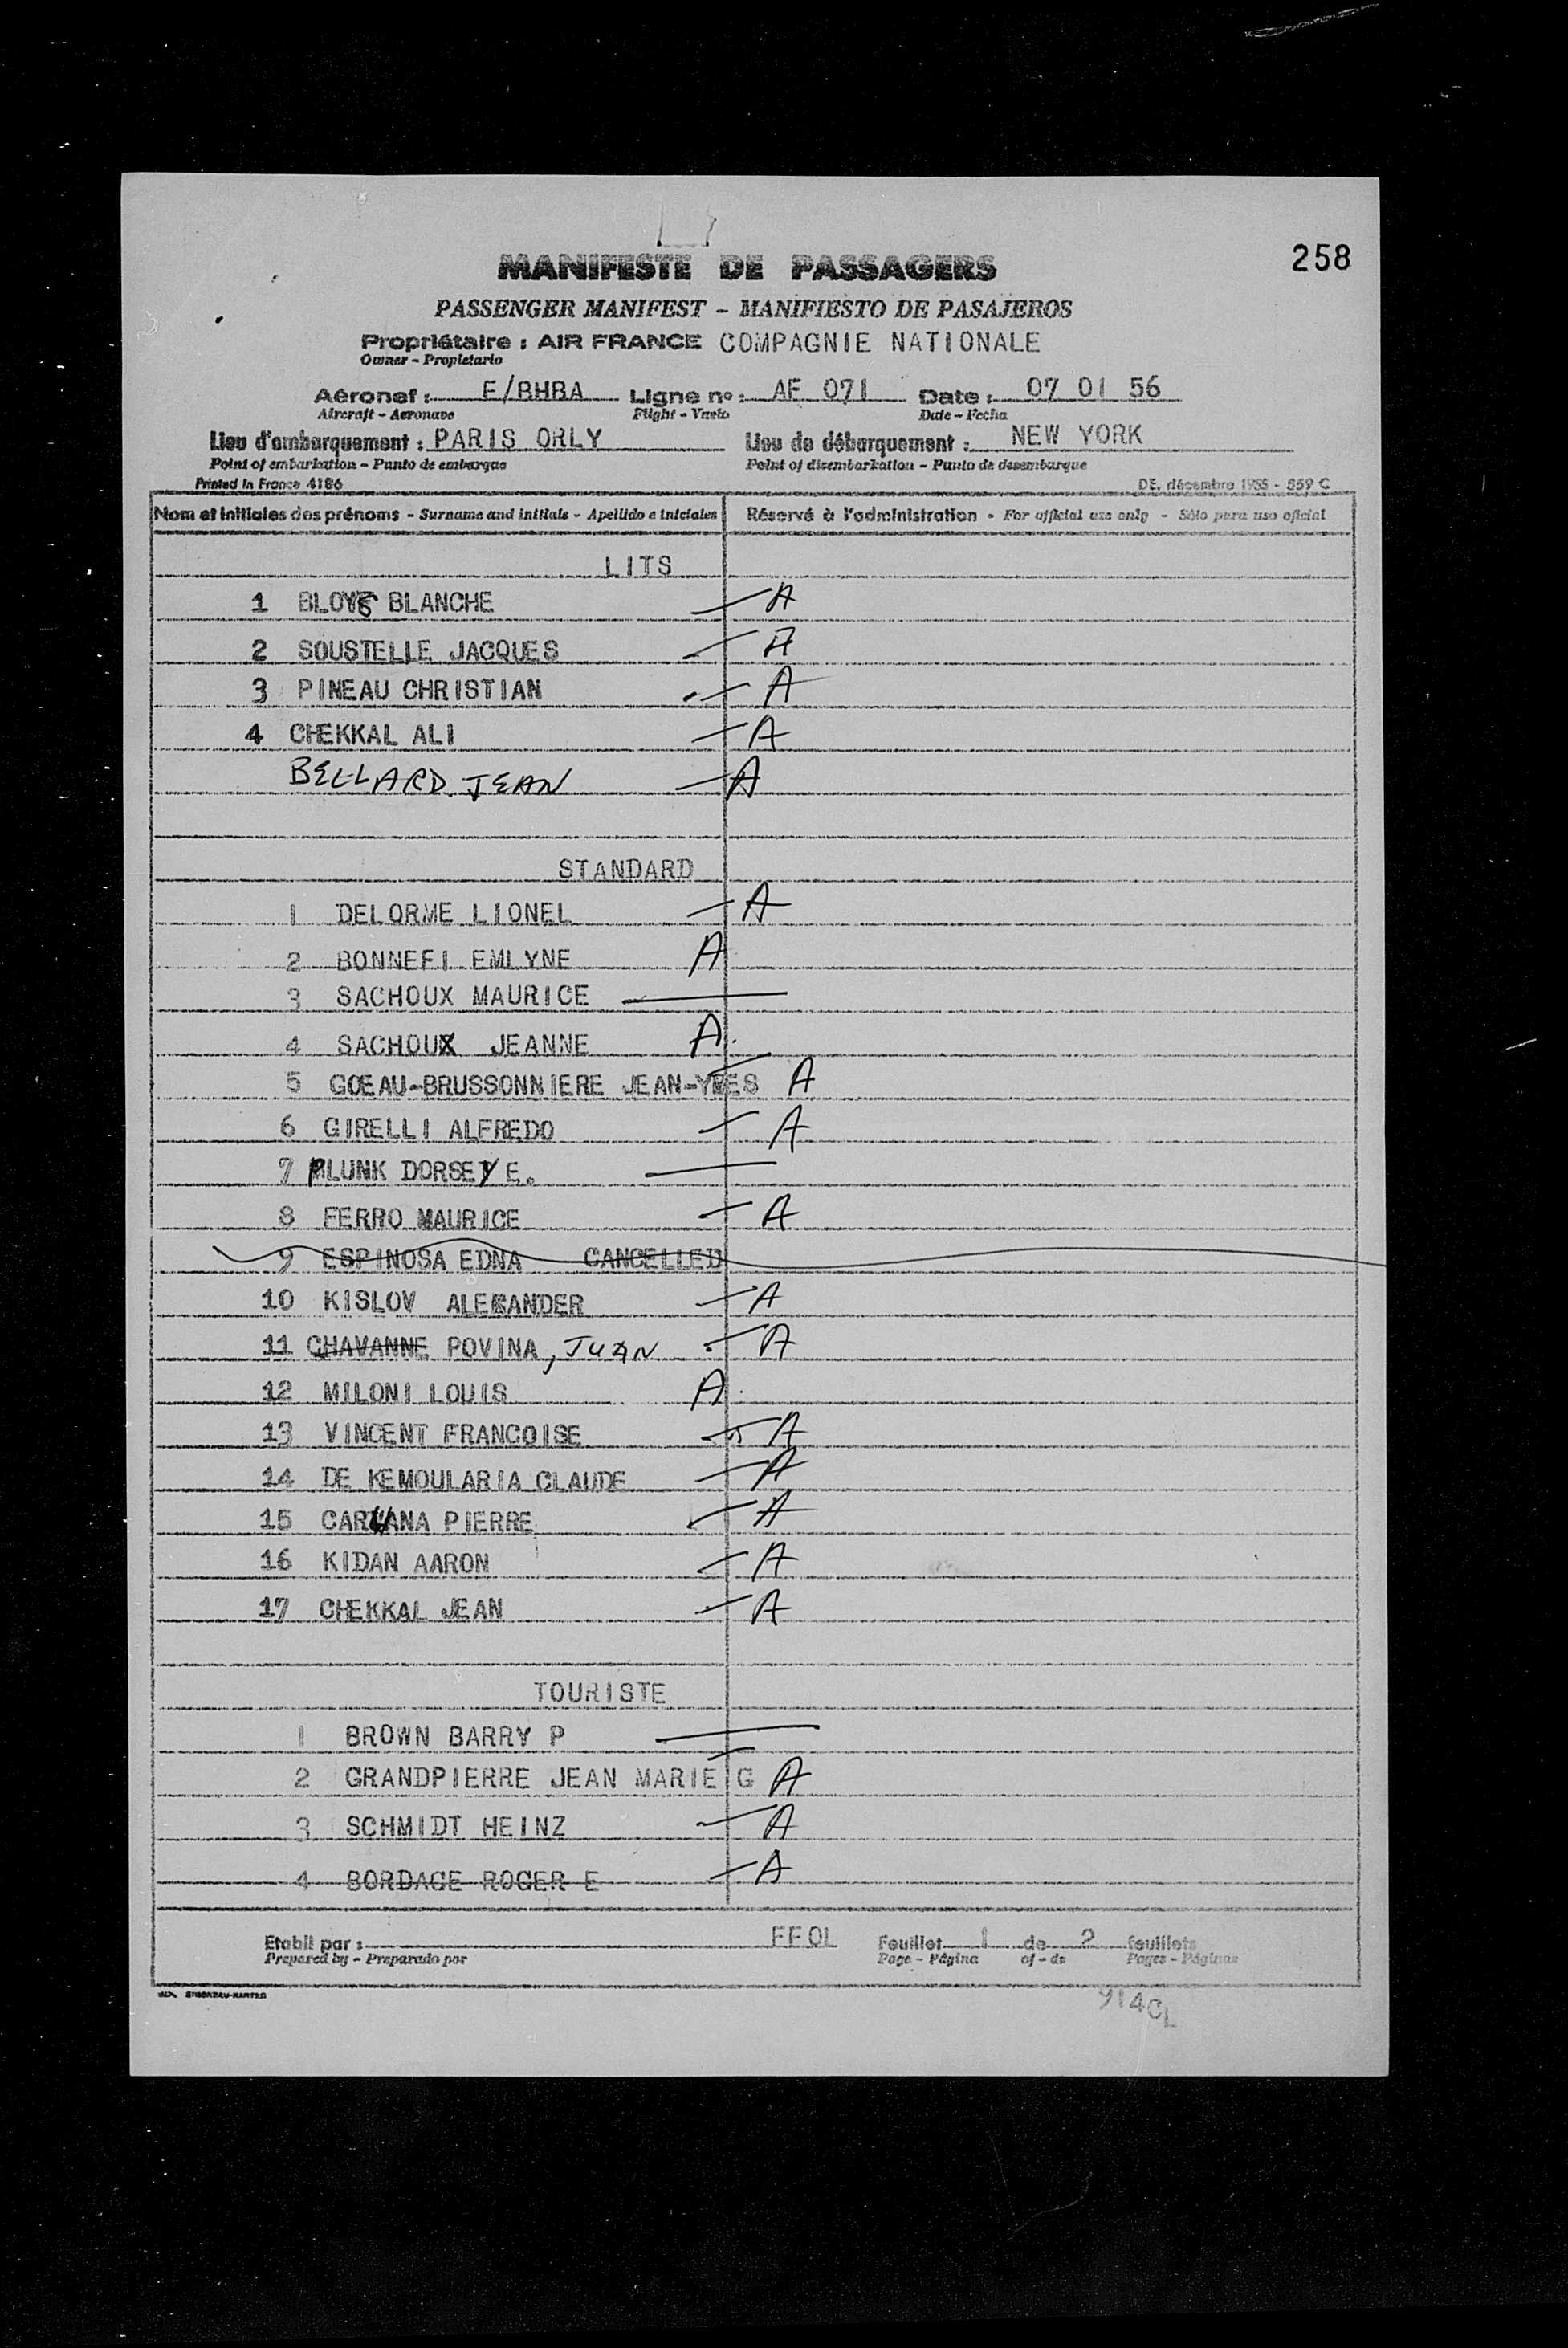 258
MANIFESTE DE PASSAGERS
PASSENGER MANIFEST - MANIFIESTO DE PASAJEROS
Propriétaire : AIR FRANCE COMPAGNIE NATIONALE
Owner - Propietario
Aéronef : F/BHBA Ligne nº : AF 071 Date : 07 01 56
Aircraft - Aeronave Flight - Vuelo Date - Fecha
Lieu d'embarquement : PARIS ORLY Lieu de débarquement : NEW YORK
Point of embarkation - Punto de embarque Point of disembarkation - Punto de desembarque
Printed in France 4186 DE. décembre 1955 - 559 C
Nom et initiales des prénoms - Surname and initials - Apellido e iniciales Réservé à l'administration - For official use only - Sólo para uso oficial
LITS
1 BLOYE BLANCHE A
2 SOUSTELLE JACQUES A
3 PINEAU CHRISTIAN A
4 CHEKKAL ALI A
BELLARD JEAN A
STANDARD
1 DELORME LIONEL A
2 BONNEFI EMLYNE A
3 SACHOUX MAURICE
4 SACHOUX JEANNE A
5 GOEAU-BRUSSONNIERE JEAN-YVES A
6 GIRELLI ALFREDO A
7 PLUNK DORSEY E.
8 FERRO MAURICE A
9 ESPINOSA EDNA CANCELLED
10 KISLOV ALEXANDER A
11 CHAVANNE POVINA, JUAN A
12 MILONI LOUIS A
13 VINCENT FRANCOISE A
14 DE KEMOULARIA CLAUDE A
15 CARUANA PIERRE A
16 KIDAN AARON A
17 CHEKKAL JEAN A
TOURISTE
1 BROWN BARRY P
2 GRANDPIERRE JEAN MARIE G A
3 SCHMIDT HEINZ A
4 BORDAGE ROGER E A
Etabli par : FFOL Feuillet 1 de 2 feuillets
Prepared by - Preparado por Page - Página of - de Pages - Páginas
914CL